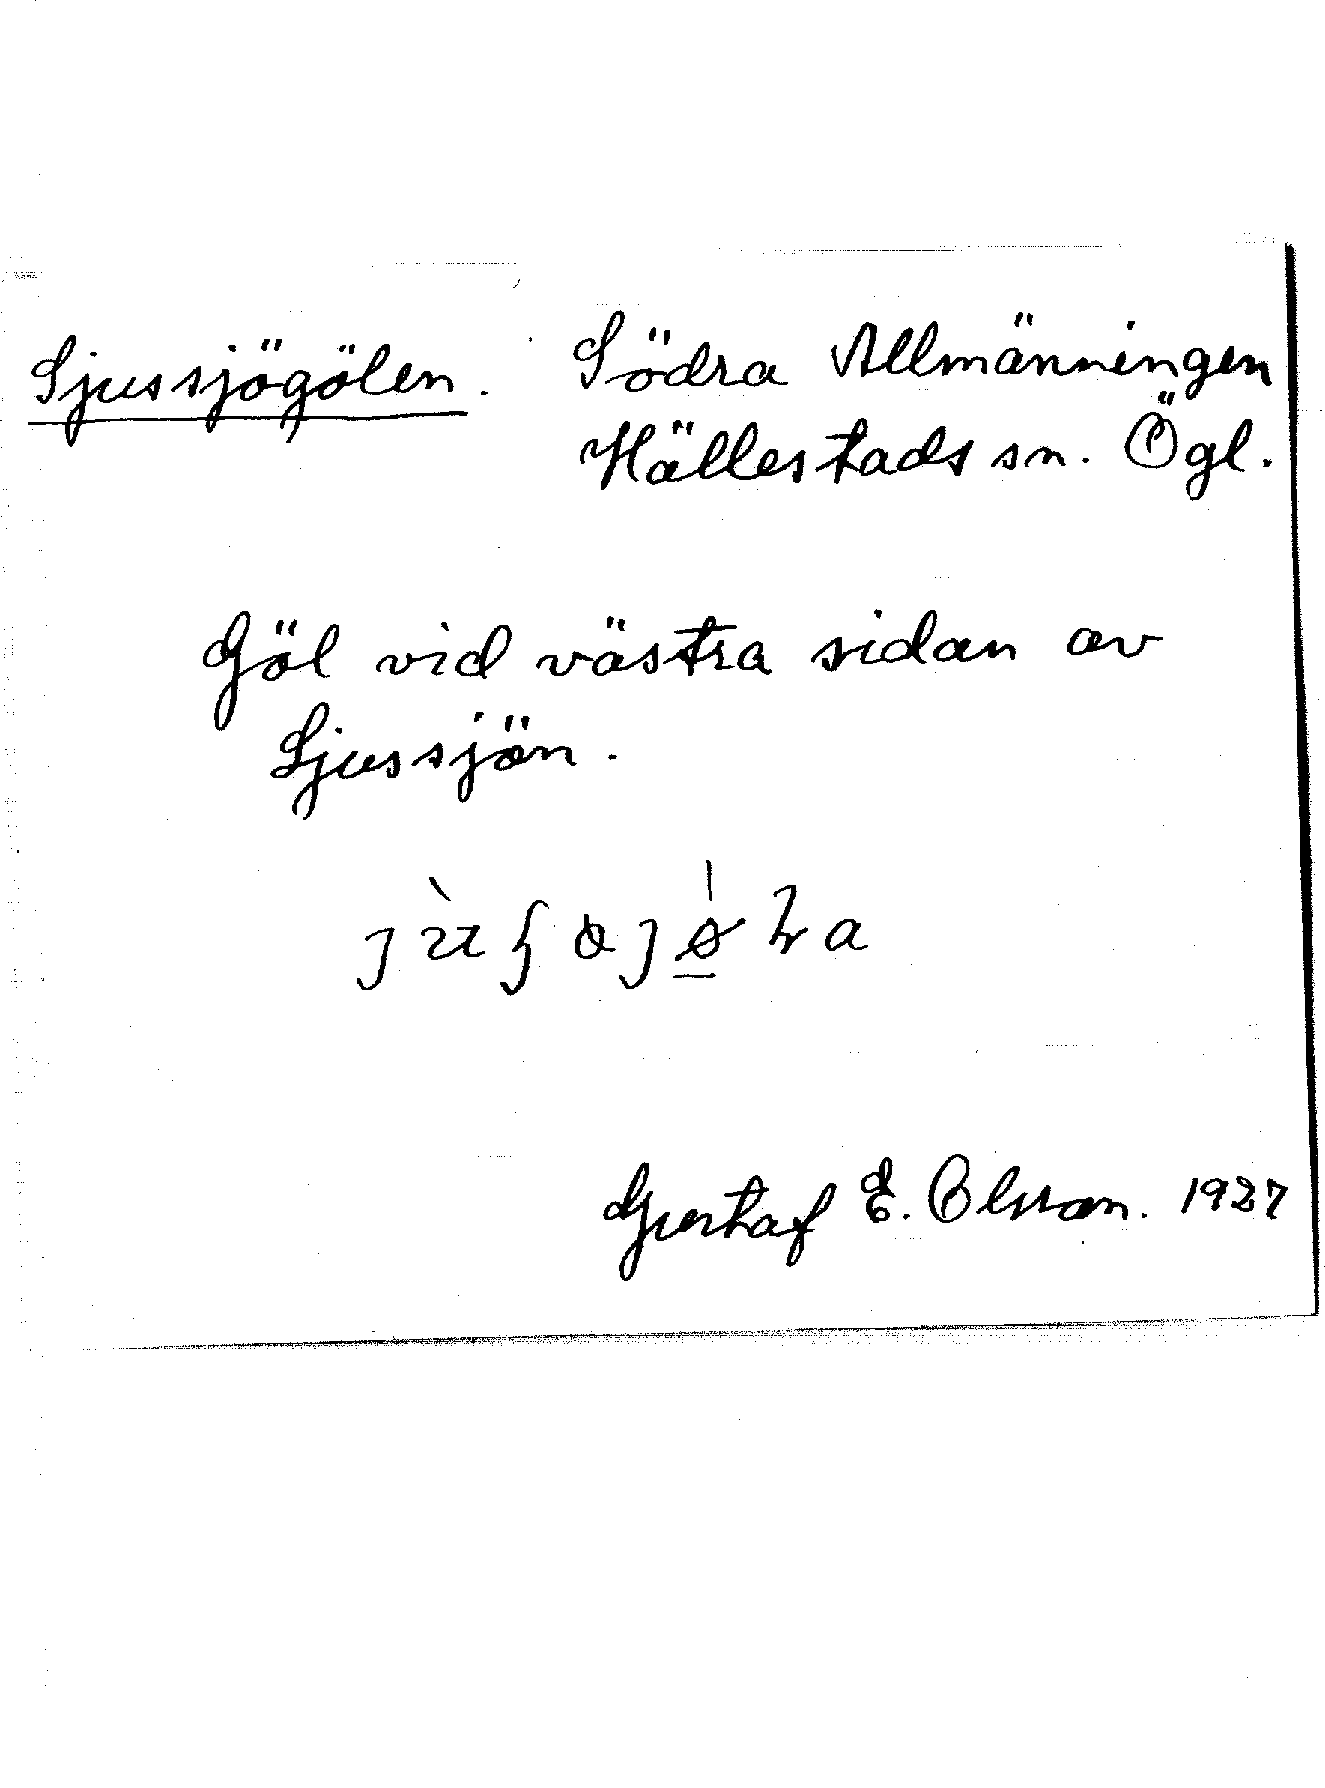 Ljussjögölen. Södra Allmänningen
Hällestads sn. Ögl.
Göl vid västra sidan av
Ljussjön.
Gustaf E. Olsson. 1927